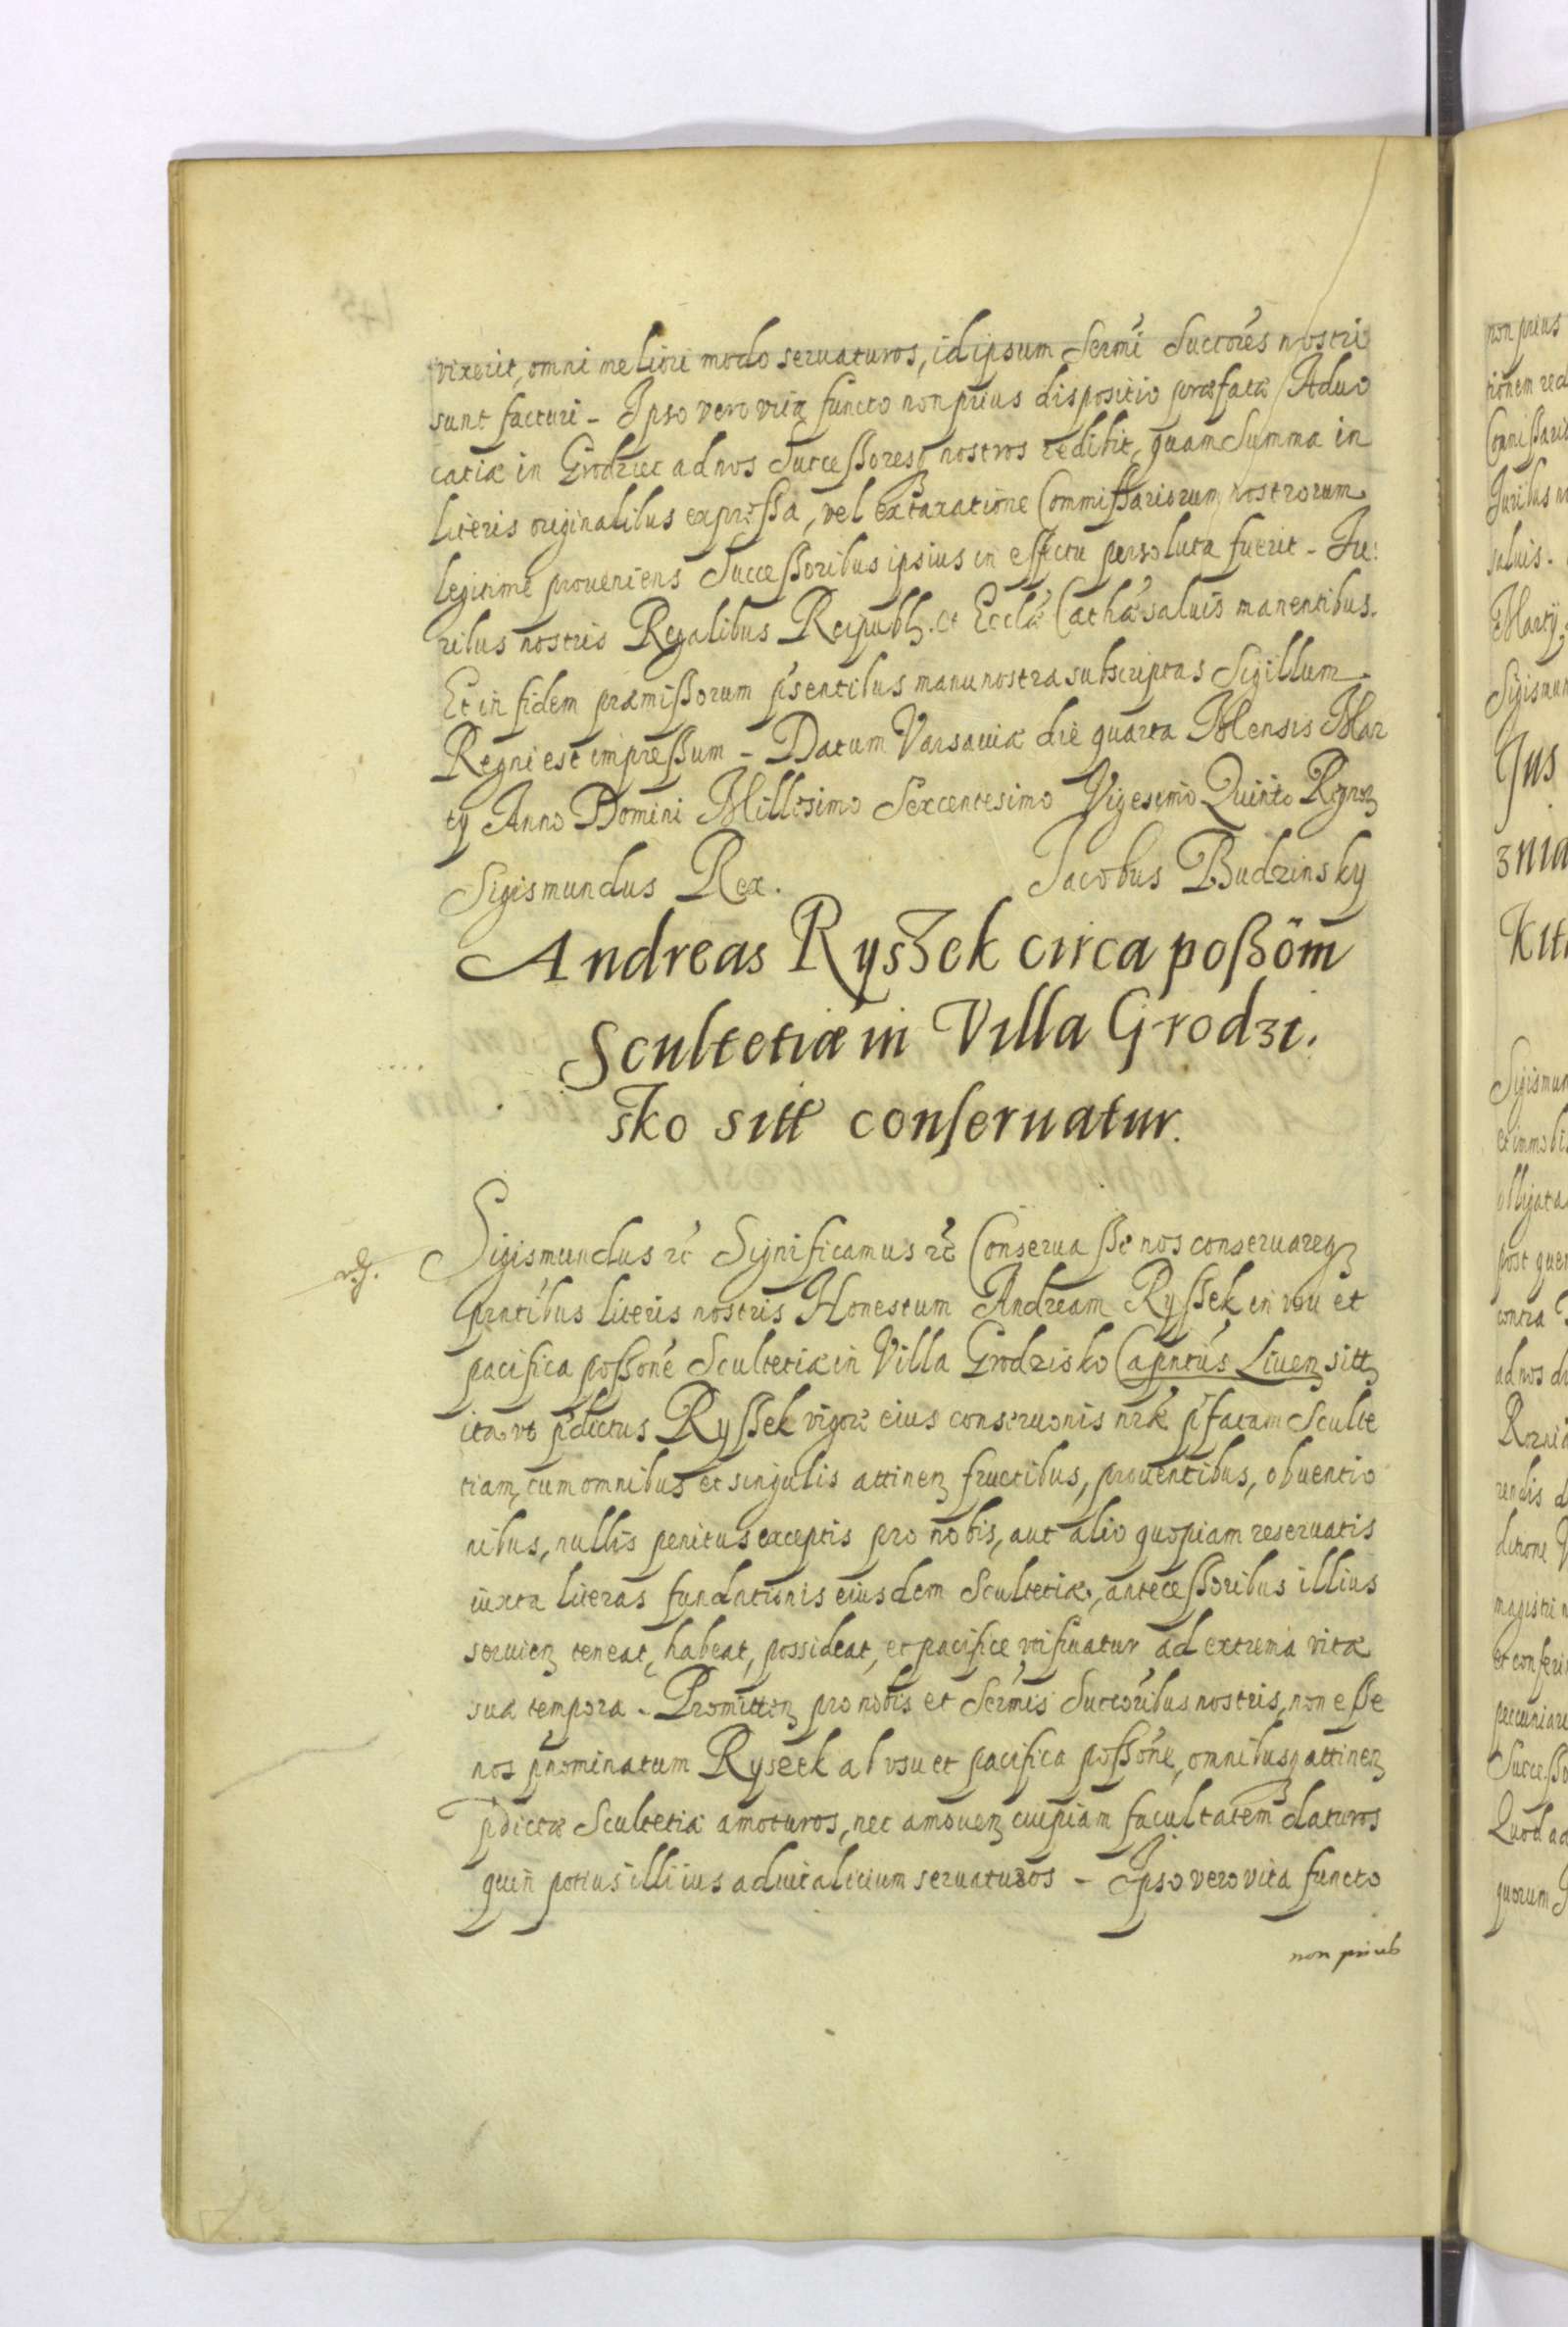 vixerit, omni meliori modo seruaturos, id ipsum Sermi Succores nostri
sunt facturi - Ipso vero vita functo non prius dispositio præfatæ Aduo
catiæ in Grodziec ad nos Successoresq nostros redibit, quam Summa in
literis originalibus expressa, vel ex taxatione Commissariorum nostrorum
legitime proueniens Successoribus ipsius in effectu persoluta fuerit - Iu:
ribus nostris Regalibus Reipubl. et Ecclæ Cathæ saluis manentibus.
Et in fidem præmissorum psentibus manu nostra subscriptas Sigillum
Regni est impressum - Datum Varsauiæ die quarta Mensis Mar
ty Anno Domini Millesimo Sexcentesimo Vigesimo Quinto Regnor
Sigismundus Rex. Jacobus Budzinsky
Andreas Ryszek circa poßõm
Scultetiæ in Villa Grodzi.
sko sitt conseruatur.
Sigismundus rc Significamus rc Conseruasse nos conseruareq
pntibus literis nostris Honestum Andream Ryssek in vsu et
pacifica possone Scultetiæ in Villa Grodzisko Capntus Liuen sitt
ita vt pdictus Ryssek vigore eius conseruonis nræ pfatam Sculte
tiam, cum omnibus et singulis attinen fructibus, prouentibus, obuentio
nibus, nullis penitus exceptis pro nobis, aut alio quopiam reseruatis
iuxta literas fundationis eiusdem Scultetiæ, antecessoribus illius
seruien teneat, habeat, possideat, et pacifice vtifruatur ad extrema vitæ
suæ tempora. Promitten pro nobis et Sermis Succoribus nostris, non esse
nos pnominatum Ryszek ab vsu et pacifica possone, omnibusq attinen
pdictæ Scultetiæ amoturos, nec amouen cuipiam facultatem daturos
quin potius illi ius aduitalitium seruaturos - Ipso vero vita functo
non prius